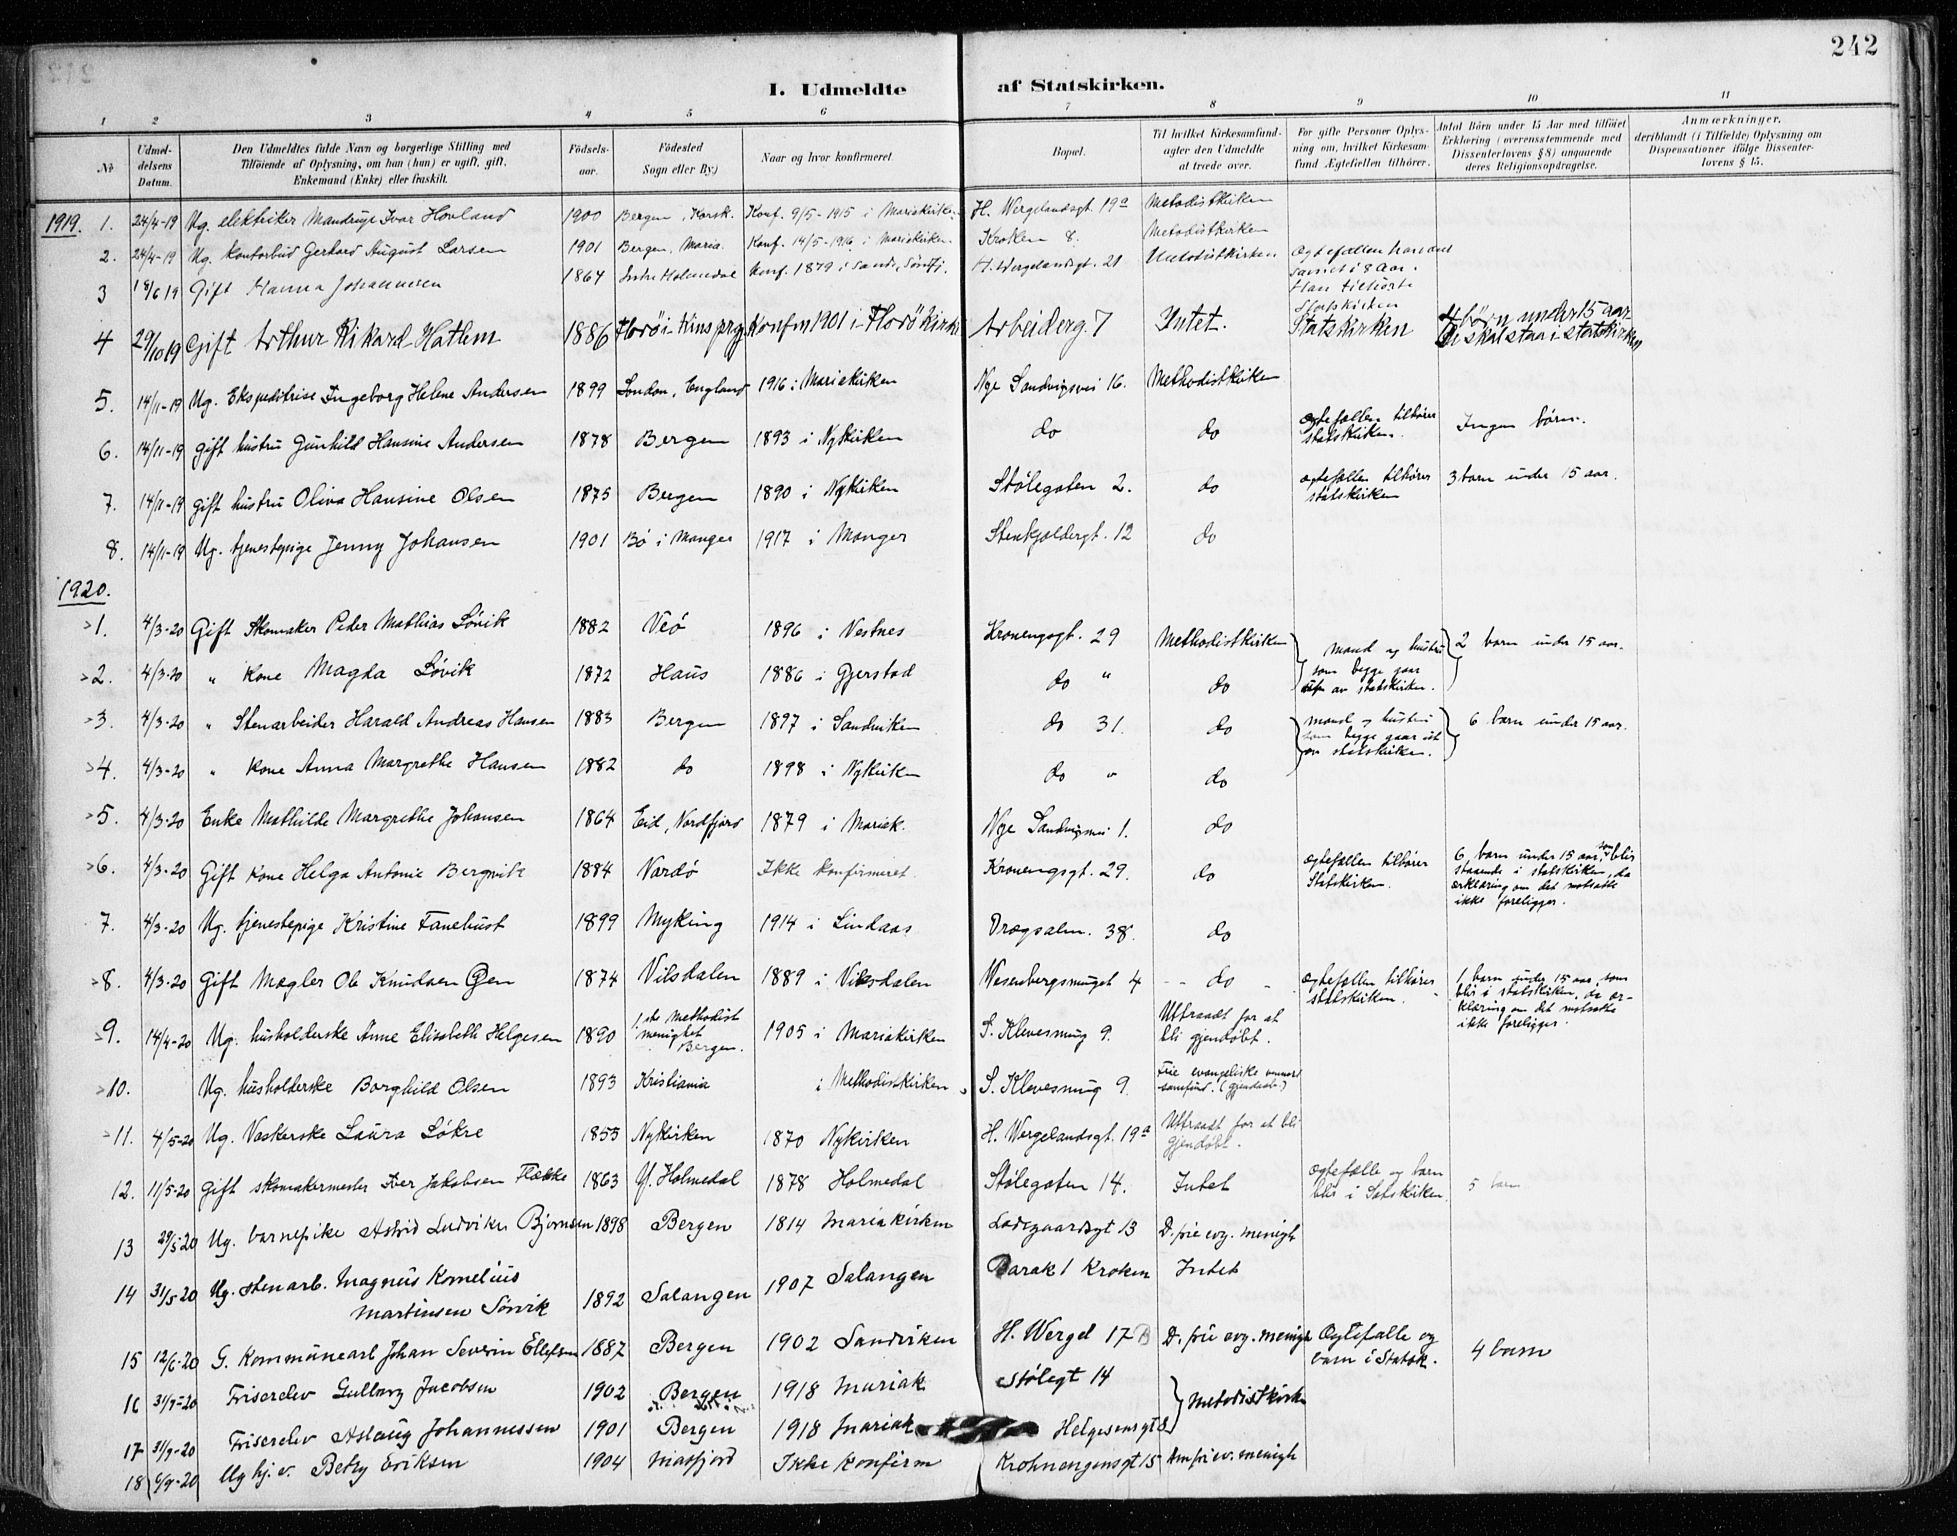 242
I. Udmeldte af Statskirken.
1 2 3 4 5 6 7 8 9 10 11
No
Udmeldelsens Datum.
Den Udmeldtes fulde Navn og borgerlige Stilling med
Tilföiende af Oplysning, om han (hun) er ugift, gift,
Enkemand (Enke) eller fraskilt.
Födselsaar.
Födested
Sogn eller By.)
Naar og hvor konfirmeret.
Bopæl.
Til hvilket Kirkesamfund
agter den Udmeldte
at træde over.
For gifte Personer Oplysning
om, hvilket Kirkesamfund
Ægtefællen tilhörer.
Antal Börn under 15 Aar med tilföiet
Erklæring (overensstemmende med
Dissenterlovens § 8) angaaende
deres Religionsopdragelse.
Anmærkninger,
deriblandt (i Tilfælde) Oplysning om
Dispensationer ifölge Dissenterlovens § 15.
1919. 1. 24/4-19 Ug. elektriker Mandrup Ivar Hovland 1900 Bergen, Korsk. Konf. 9/5-1915 i Mariekirken H. Wergelandsgt. 19a Metodistkirken
2. 24/4-19 Ug. kontorbud Gerhard August Larsen 1901 Bergen, Maria. Konf. 14/5-1916 i Mariekirken Kroken 8. Metodistkirken
3 18/6 19 Gift Hanna Johannesen 1864 Indre Holmedal Konf. 1879 i Sande, Søndfj. H. Wergelandsgt. 21 Metodistkirken Ægtefællen har vært savnet i 8 aar. Han tilhørte Statskirken
4 29/10 19 Gift Arthur Rikard Hatlem 1886 Florö i Kins prg. Konfm 1901 i Florö kirke Arbeiderg. 7 Intet. Statskirken 4 börn under 15 aar De skal staa i statskirken
5. 14/11-19 Ug. Ekspeditrise Ingeborg Helene Andersen 1899 London, England 1916 i Mariekirken Nye Sandvigsvei 16. Methodistkirken
6. 14/11-19 gift hustru Gunhild Hansine Andersen 1878 Bergen 1893 i Nykirken do do ægtefællen tilhører statskirken. Ingen børn.
7. 14/11-19 gift hustru Oliva Hansine Olsen 1875 Bergen 1890 i Nykirken Stølegaten 2. do ægtefællen tilhører statskirken 3 barn under 15 aar.
8. 14/11-19 Ug. tjenestepige Jenny Johansen 1901 Bø i Manger 1917 i Manger Stenkjeldergt. 12 do
1920.
>1. 4/3-20 Gift Skomaker Peder Mathias Søvik 1882 Veö 1896 i Vestnes Kronengsgt. 29 Methodistkirken mand og hustru som begge gaar ut av statskirken. 2 barn under 15 aar.
>2. 4/3-20 " kone Magda Søvik 1872 Haus 1886 i Gjerstad do " do
>3. 4/3-20 " Stenarbeider Harald Andreas Hansen 1883 Bergen 1897 i Sandviken do 31. do mand og hustru som begge gaar ut av statskirken. 6 barn under 15 aar.
>4. 4/3-20 " kone Anna Margrethe Hansen 1882 do 1898 i Nykirken do " do
>5. 4/3-20 Enke Mathilde Margrethe Johansen 1864 Eid, Nordfjord 1879 i Mariek. Nye Sandvigsvei 1. do
>6. 4/3-20 Gift kone Helga Antonie Bergvik 1884 Vardø Ikke konfirmeret. Kronengsgt. 29. do ægtefællen tilhører Statskirken. 6 barn under 15 aar, som blir staaende i statskirken, da erklæring om det motsatte ikke foreligger.
7. 4/3-20 Ug. tjenestepige Kristine Fanebust 1899 Myking 1914 i Lindaas Drægsalm. 38. do
>8. 4/3-20 Gift Mægler Ole Knudsen Øen 1874 Vilsdalen 1889 i Viksdalen Wesenbergsmuget 4 do ægtefællen tilhører statskirken. 1 barn under 15 aar, som blir i statskirken, da erklæring om det motsatte ikke foreligger.
>9. 14/4-20 Ug. husholderske Anne Elisabeth Helgesen 1890 1ste Methodist menighet Bergen. 1905 i Mariakirken S. Klevesmug 9. Uttraadt for at bli gjendøbt.
>10. Ug. husholderske Borghild Olsen 1893 Kristiania i Methodistkirken S. Klevesmug 9. Frie evangeliske samfund. (gjendøbt.)
>11. 4/5-20 Ug. Vaskerske Laura Løkre 1855 Nykirken 1870 Nykirken H. Wergelandsgt. 19a Uttraadt for at bli gjendøbt.
12. 11/5-20 gift skomakermester Iver Jakobsen Flække 1863 Y. Holmedal 1878 Holmedal Stølegaten 14. Intet ægtefælle og barn blir i Satskirken. 5 barn
13 29/5 20 Ug. barnepike Astrid Ludvikes Bjørnsen 1898 Bergen 1814 Mariakirken Ladegaardsgt 13 D. frie evg. menigh
14 31/5 20 Ug. stenarb. Magnus Kornelius Martinsen Sørvik 1892 Salangen 1907 Salangen Barak 1 Kroken Intet
15 12/6-20 G. Kommunearb Johan Severin Ellefsen 1887 Bergen 1902 Sandviken H. Wergel 17 B D. frie evg. menigh Ægtefælle og barn i Statsk. 4 barn
16 31/7-20 Friserelev Gulborg Jacobsen 1902 Bergen 1918 Mariak Stølegt 14 Metodistkirke
17 31/7-20 Friserelev Aslaug Johannessen 1901 Bergen 1918 Mariak Helgesensgt 8
18 6/9-20 Ug hj.v. Betty Eriksen 1904 Masfjord Ikke Konfirm Krohnengensgt 15 Am fri ev. menigh